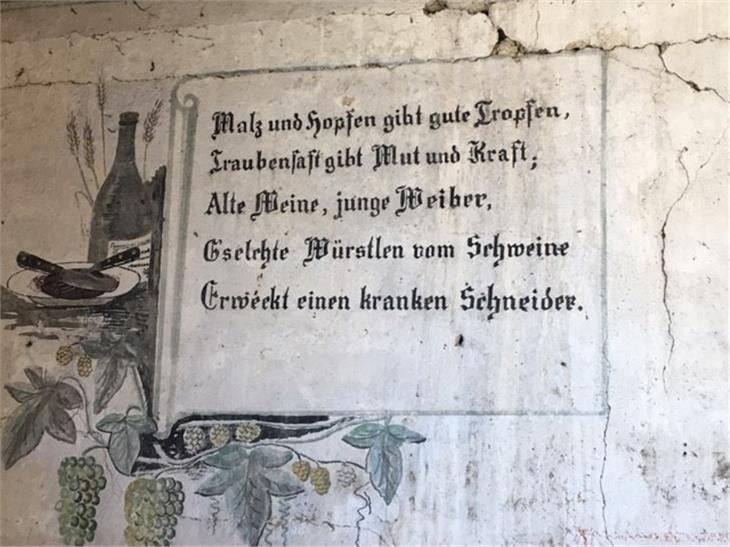 Malz und Hopfen gibt gute Tropfen,
Traubensaft gibt Mut und Kraft;
Alte Weine, junge Weiber,
Gselchte Würstlen vom Schweine
Erweckt einen kranken Schneider.